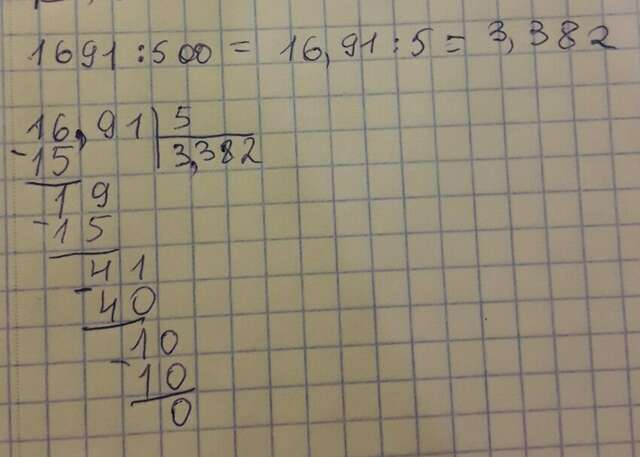 1691 : 500 = 16,91 : 5 = 3,382
16,91 | 5
-15 | 3,382
19
-15
41
-40
10
-10
0